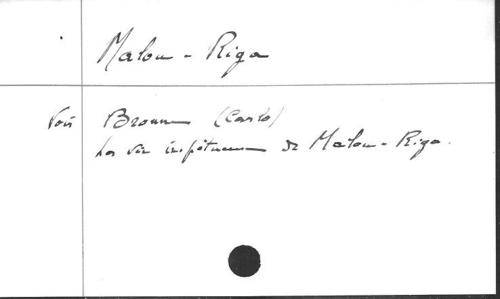 Malou-Riga
Voir Bronne (Carlo)
La vie impétueuse de Malou-Riga.